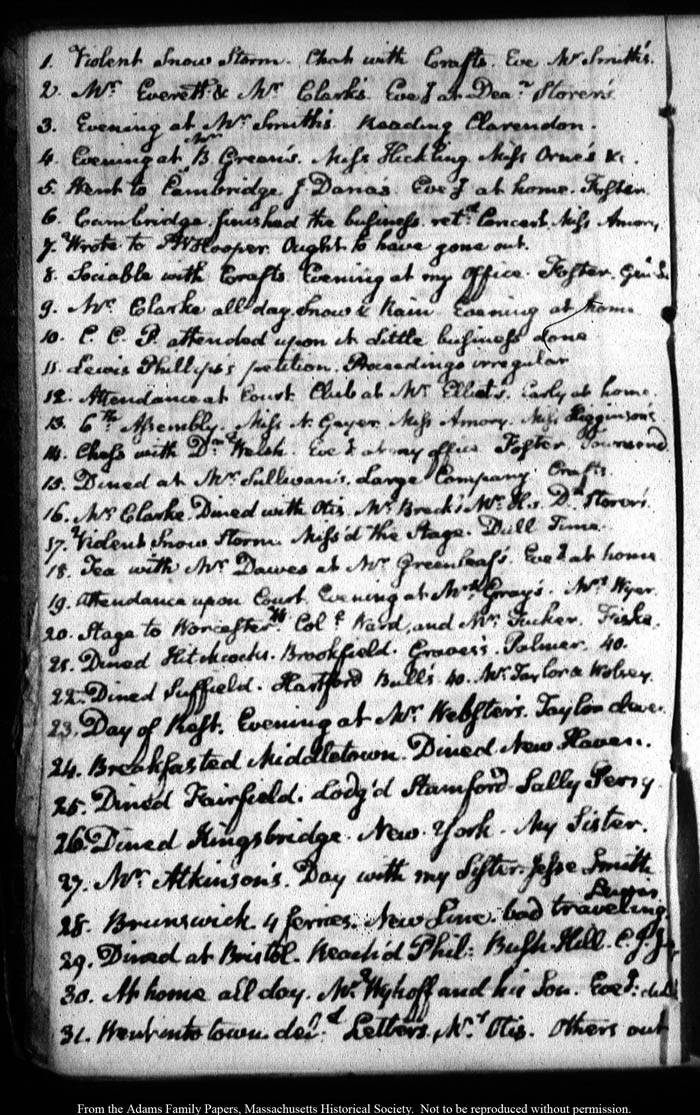 1. Violent Snow Storm. Chat with Crafts. Eve Mr. Smith's.
2. Mr. Everett & Mr. Clark's. Eveg. at Deacn. Storer's.
3. Evening at Mr. Smith's. Reading Clarendon.
4. Evening at Mr. B. Green's. Miss Hickling. Miss Orne's &c.
5. Went to Cambridge. J Dana's. Eveg. at home. Foster.
6. Cambridge. finished the business. retd. Concert. Miss Amory.
7. Wrote to Hooper. Ought to have gone out.
8. Sociable with Crafts. Evening at my office. Foster.
9. Mr. Clarke all day. Snow & Rain. Evening at home
10. C. C. P. attended upon it. Little business done
11. Lewis Phillips's petition. Proceedings irregular
12. Attendance at Court. Club at Mr. Elliot's. Early at home.
13. 6th. Assembly. Miss N. Gayer. Miss Amory. Miss Higginson's
14. Chess with Dr. Welsh. Eveg. at my office. Foster. Townsend.
15. Dined at Mr. Sullivan's. Large Company. Crafts.
16. Mr. Clarke. Dined with Otis. Mr. Breck's Mr. H.s Dn. Storer's.
17. Violent Snow Storm. Miss'd the Stage. Dull Time.
18. Tea with Mr. Dawes at Mr. Greenleaf's. Eveg. at home
19. Attendance upon Court. Evening at Mr. Gray's. Mr. Wyer.
20. Stage to Worcester. Coll. Ward, and Mr. Tucker. Fiske.
21. Dined Hitchcocks. Brookfield. Graves's. Palmer. 40.
22. Dined Suffield. Hartford Bull's 40. Mr. Taylor & Wolsey.
23. Day of Rest. Evening at Mr. Webster's. Taylor
24. Breakfasted Middletown. Dined New Haven.
25. Dined Fairfield. Lodg'd Stamford. Sally Perry
26. Dined Kingsbridge. New York. My Sister.
27. Mr. Atkinson's. Day with my Sister. Jesse Smith
28. Brunswick. 4 ferries. New Line. bad traveling.
29. Dined at Bristol. Reach'd Phil: Bush Hill.
30. At home all day. Mr. Wykoff and his Son. Eveg: dull
31. Went into town. deld. Letters. Mr. Otis. Others out
From the Adams Family Papers, Massachusetts Historical Society. Not to be reproduced without permission.